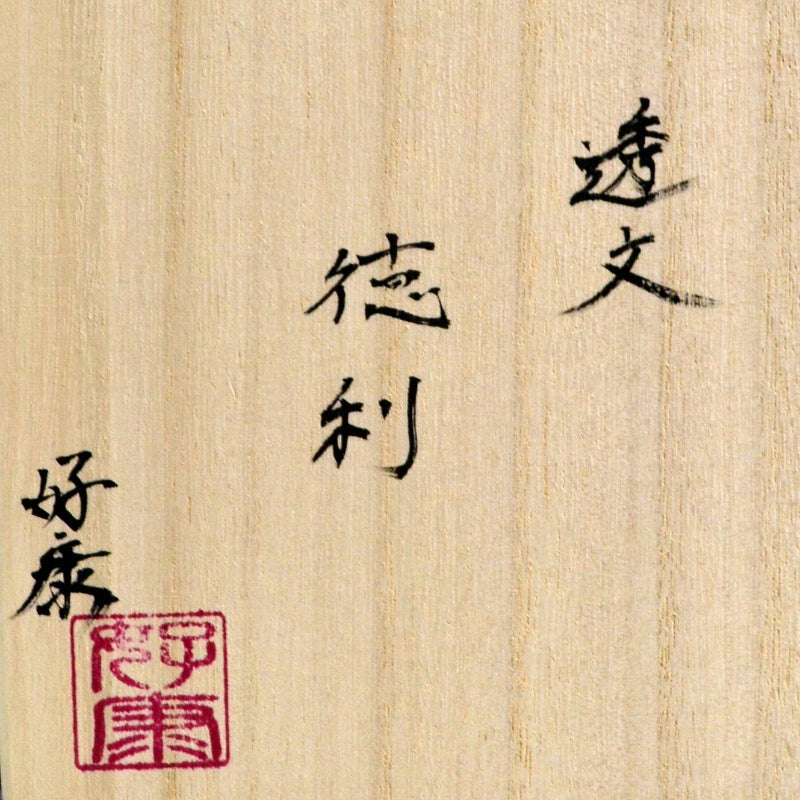 透文
徳利
好康
好康